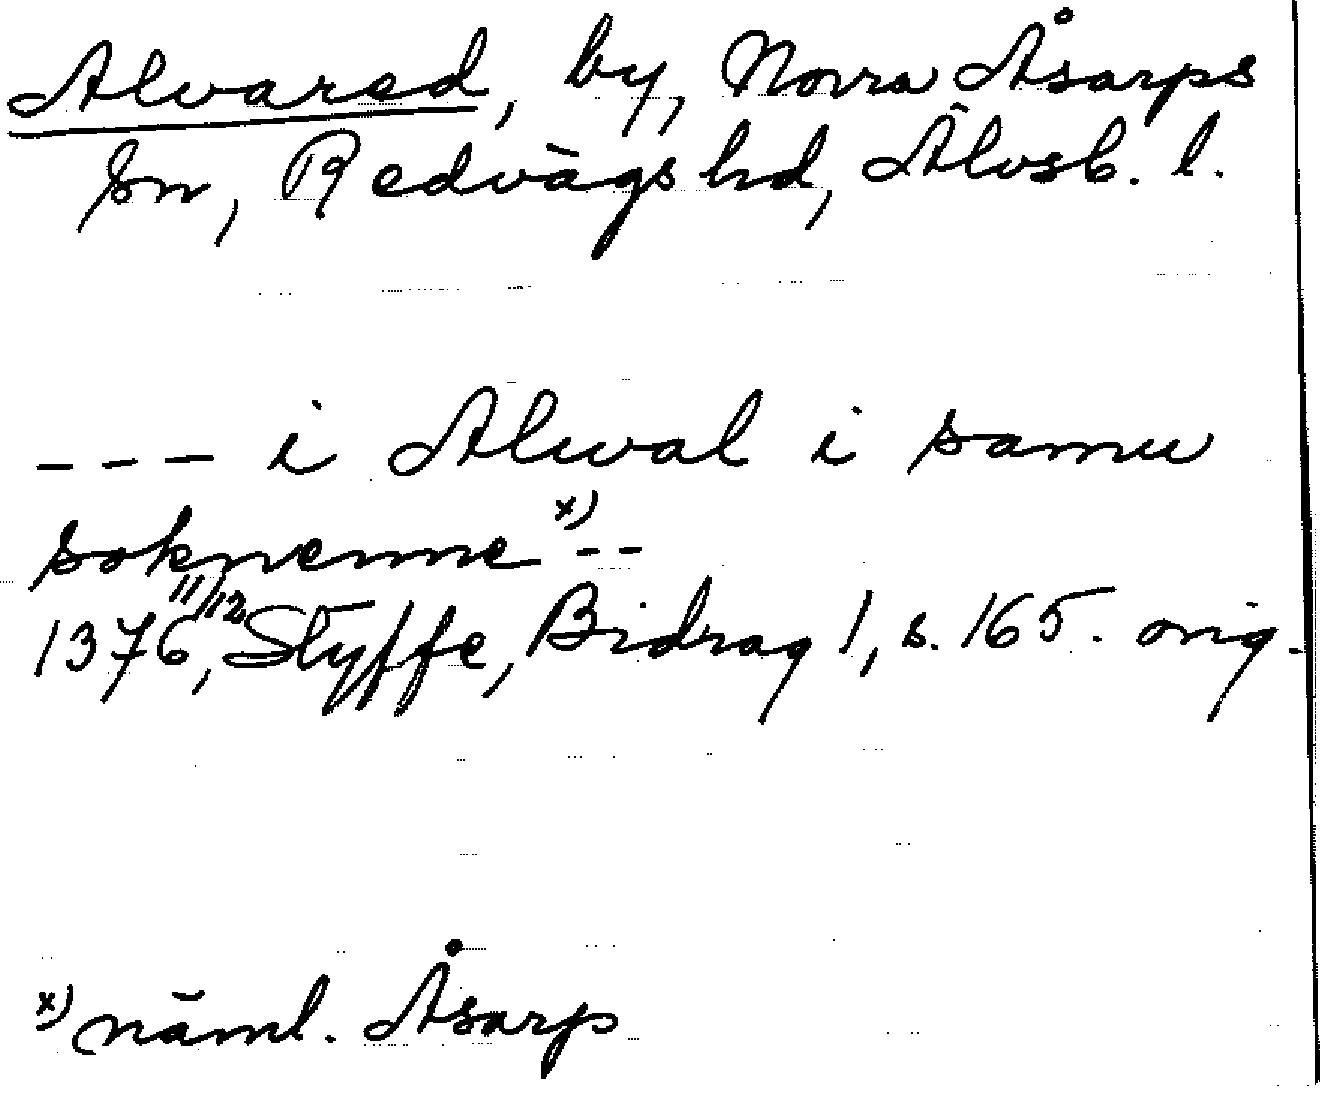 Alvared, by, Norra Åsarps
sn, Redvägs hd, Älvsb. l.
--- i Alwal i samu
soknenne x) --
1376 11/12, Styffe, Bidrag 1, s. 165. orig.
x) näml. Åsarp